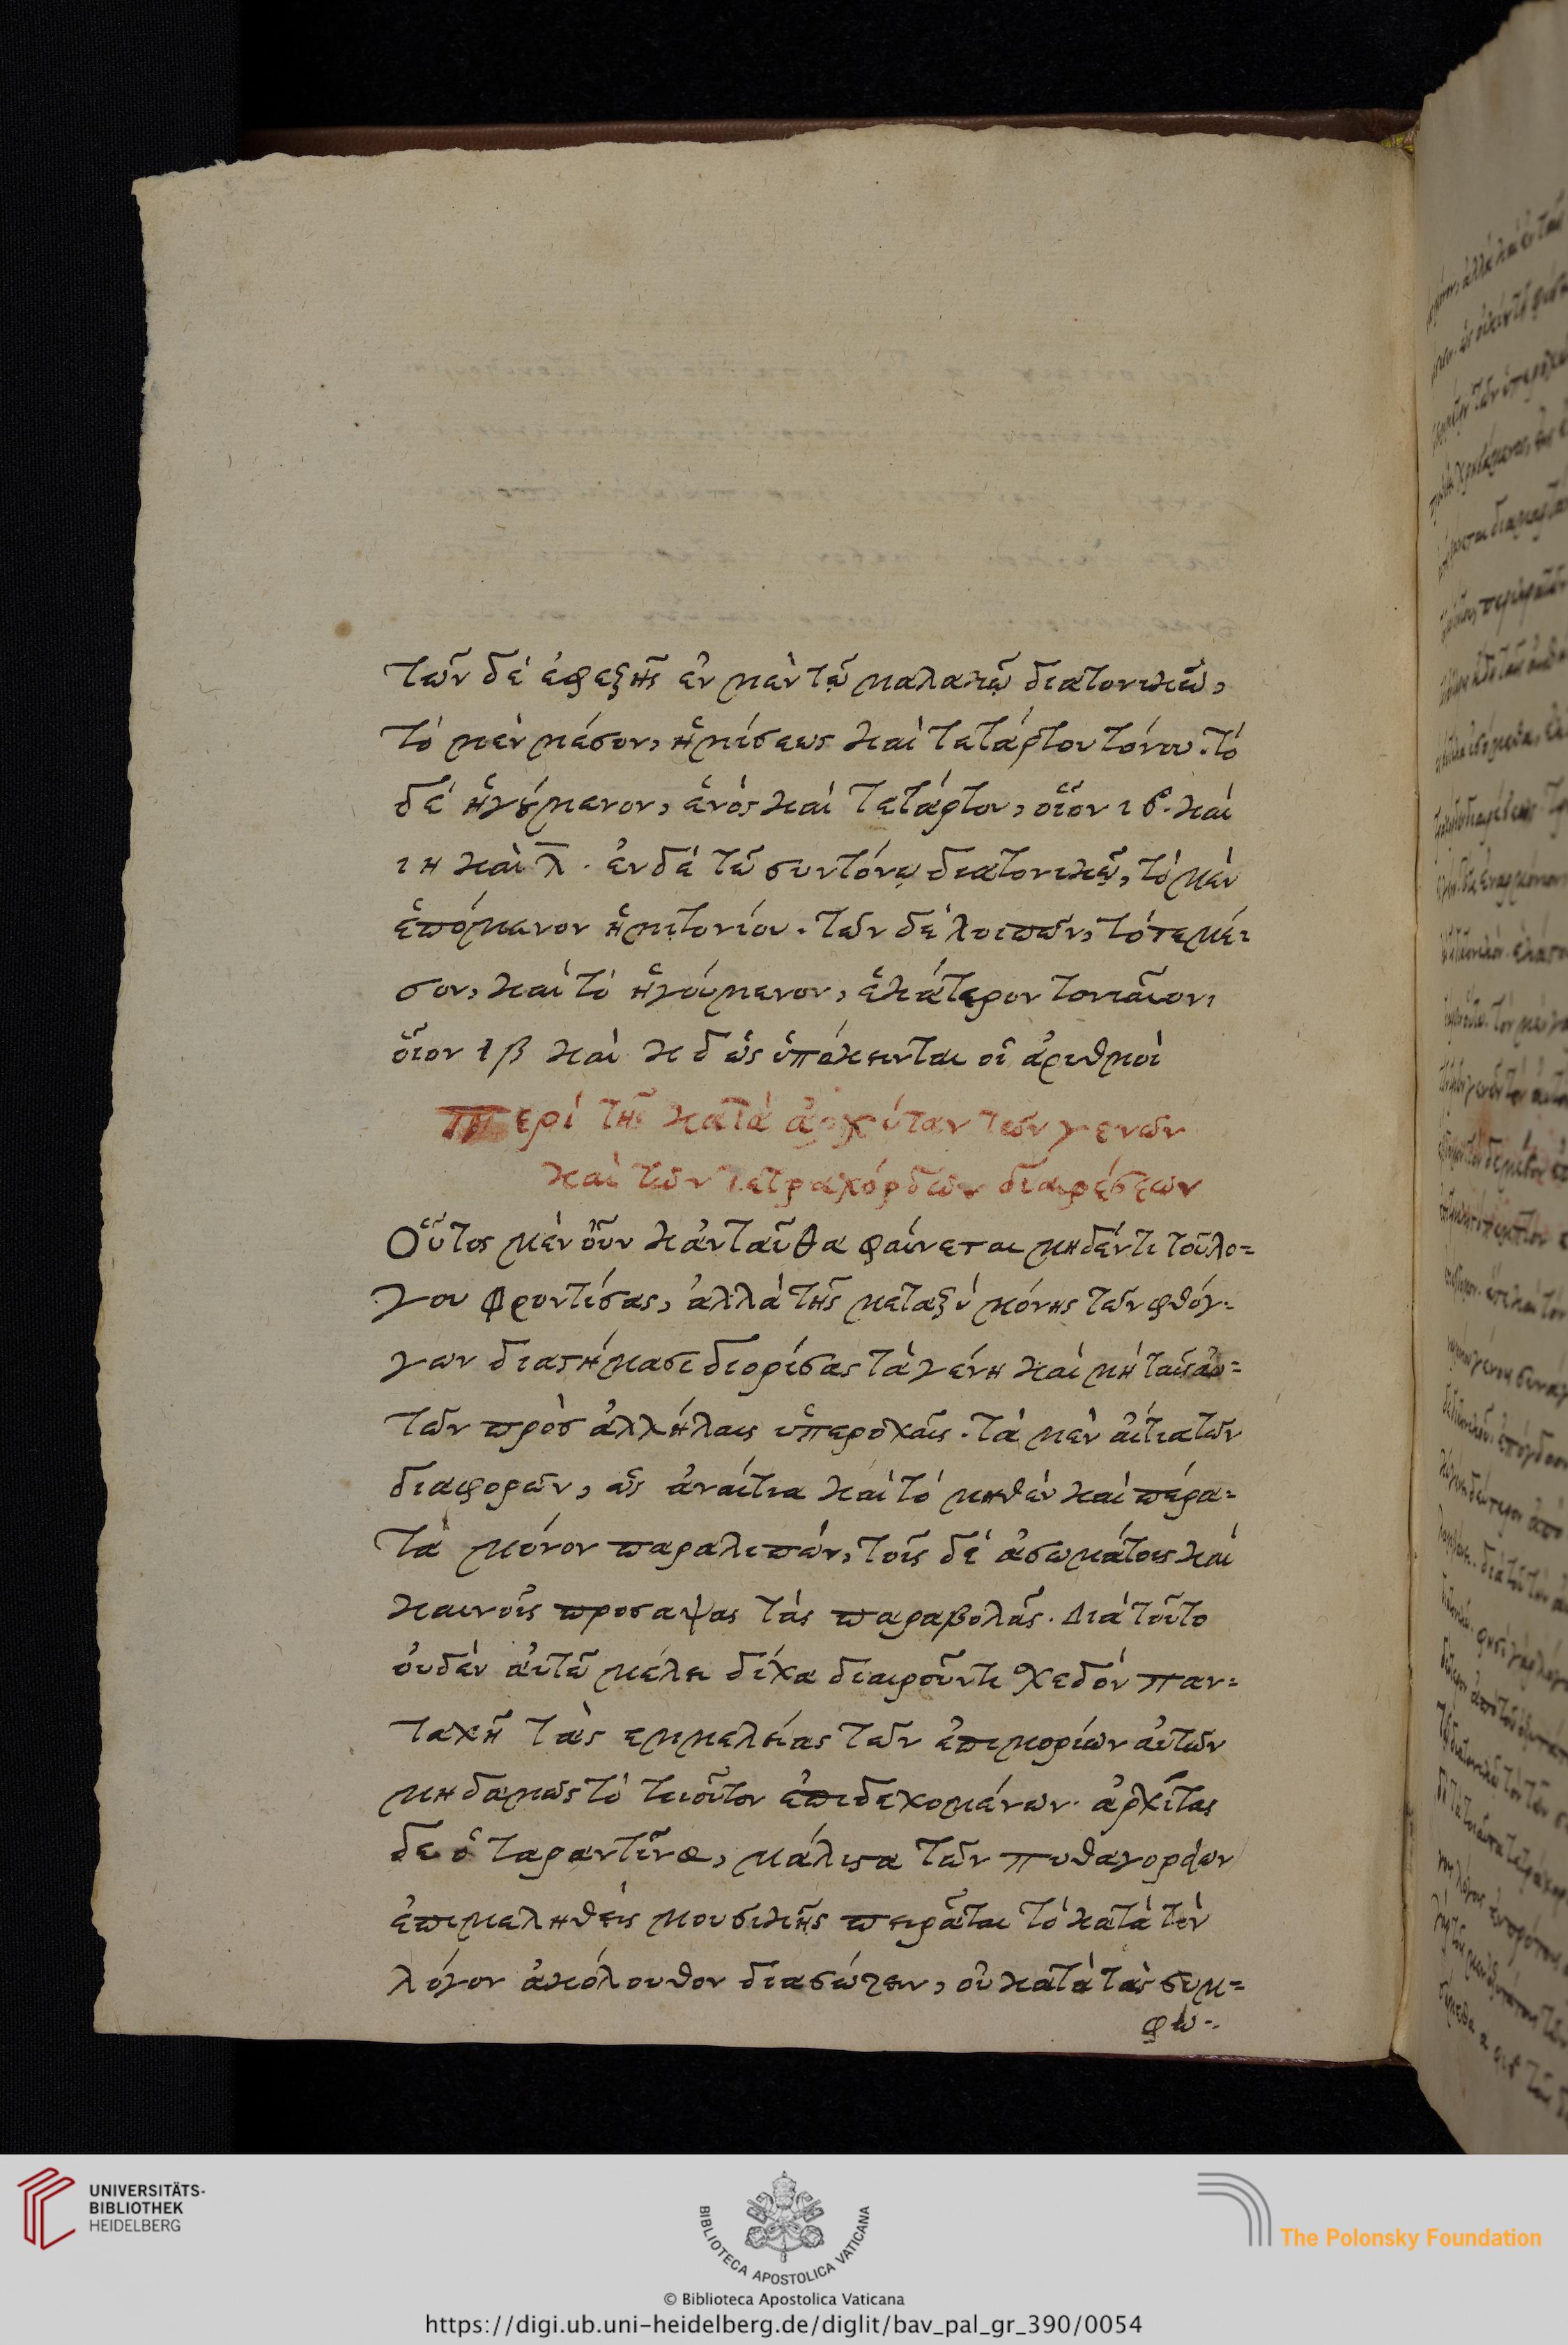 τῶν δὲ ἐφεξῆς ἐν μὲν τῷ μαλακῷ διατονικῷ,
τὸ μὲν μέσον, ἡμίσεως καὶ τετάρτου τόνου. τὸ
δὲ ἡγούμενον, ἑνὸς καὶ τετάρτου, οἷον ιβ. καὶ
ιη καὶ λ. ἐν δὲ τῷ συντόνῳ διατονικῷ, τὸ μὲν
ἑπόμενον ἡμιτονίου. τῶν δὲ λοιπῶν, τότε μέ-
σον, καὶ τὸ ἡγούμενον, ἑκάτερον τονιαῖον,
οἷον ιβ καὶ κδ ὡς ὑπόκεινται οἱ ἀριθμοὶ
περὶ τῆς κατὰ ἀρχύταν τῶν γενῶν
καὶ τῶν τετραχόρδων διαιρέσεων
Οὗτος μὲν οὖν κἀνταῦθα φαίνεται μηδέν τι τοῦ λό-
γου φροντίσας, ἀλλὰ τῆς μεταξὺ μόνης τῶν φθόγ-
γων διαστήμασι διορίσας τὰ γένη καὶ μὴ ταῖς αὐ-
τῶν πρὸς ἀλλήλαις ὑπεροχαῖς. τὰ μὲν αἴτια τῶν
διαφορῶν, ὡς ἀναίτια καὶ τὸ μηθὲν καὶ πέρα-
τα μόνον παραλιπών, τοῖς δὲ ἀσωμάτοις καὶ
καινοῖς προσάψας τὰς παραβολάς. Διὰ τοῦτο
οὐδὲν αὐτῷ μέλει δίχα διαιροῦντι σχεδὸν παν-
ταχῇ τὰς εμμελείας τῶν ἐπιμορίων αὐτῶν
μηδαμῶς τὸ τοιοῦτον ἐπιδεχομένων. ἀρχίτας
δε ὁ ταραντῖνος, μάλιστα τῶν πυθαγορείων
ἐπιμεληθεὶς μουσικῆς πειρᾶται τὸ κατὰ τὸν
λόγον ἀκόλουθον διασώζειν, οὐ κατὰ τὰς συμ-
φω-
UNIVERSITÄTS-
BIBLIOTHEK
HEIDELBERG
BIBLIOTECA APOSTOLICA VATICANA
The Polonsky Foundation
© Biblioteca Apostolica Vaticana
https://digi.ub.uni-heidelberg.de/diglit/bav_pal_gr_390/0054